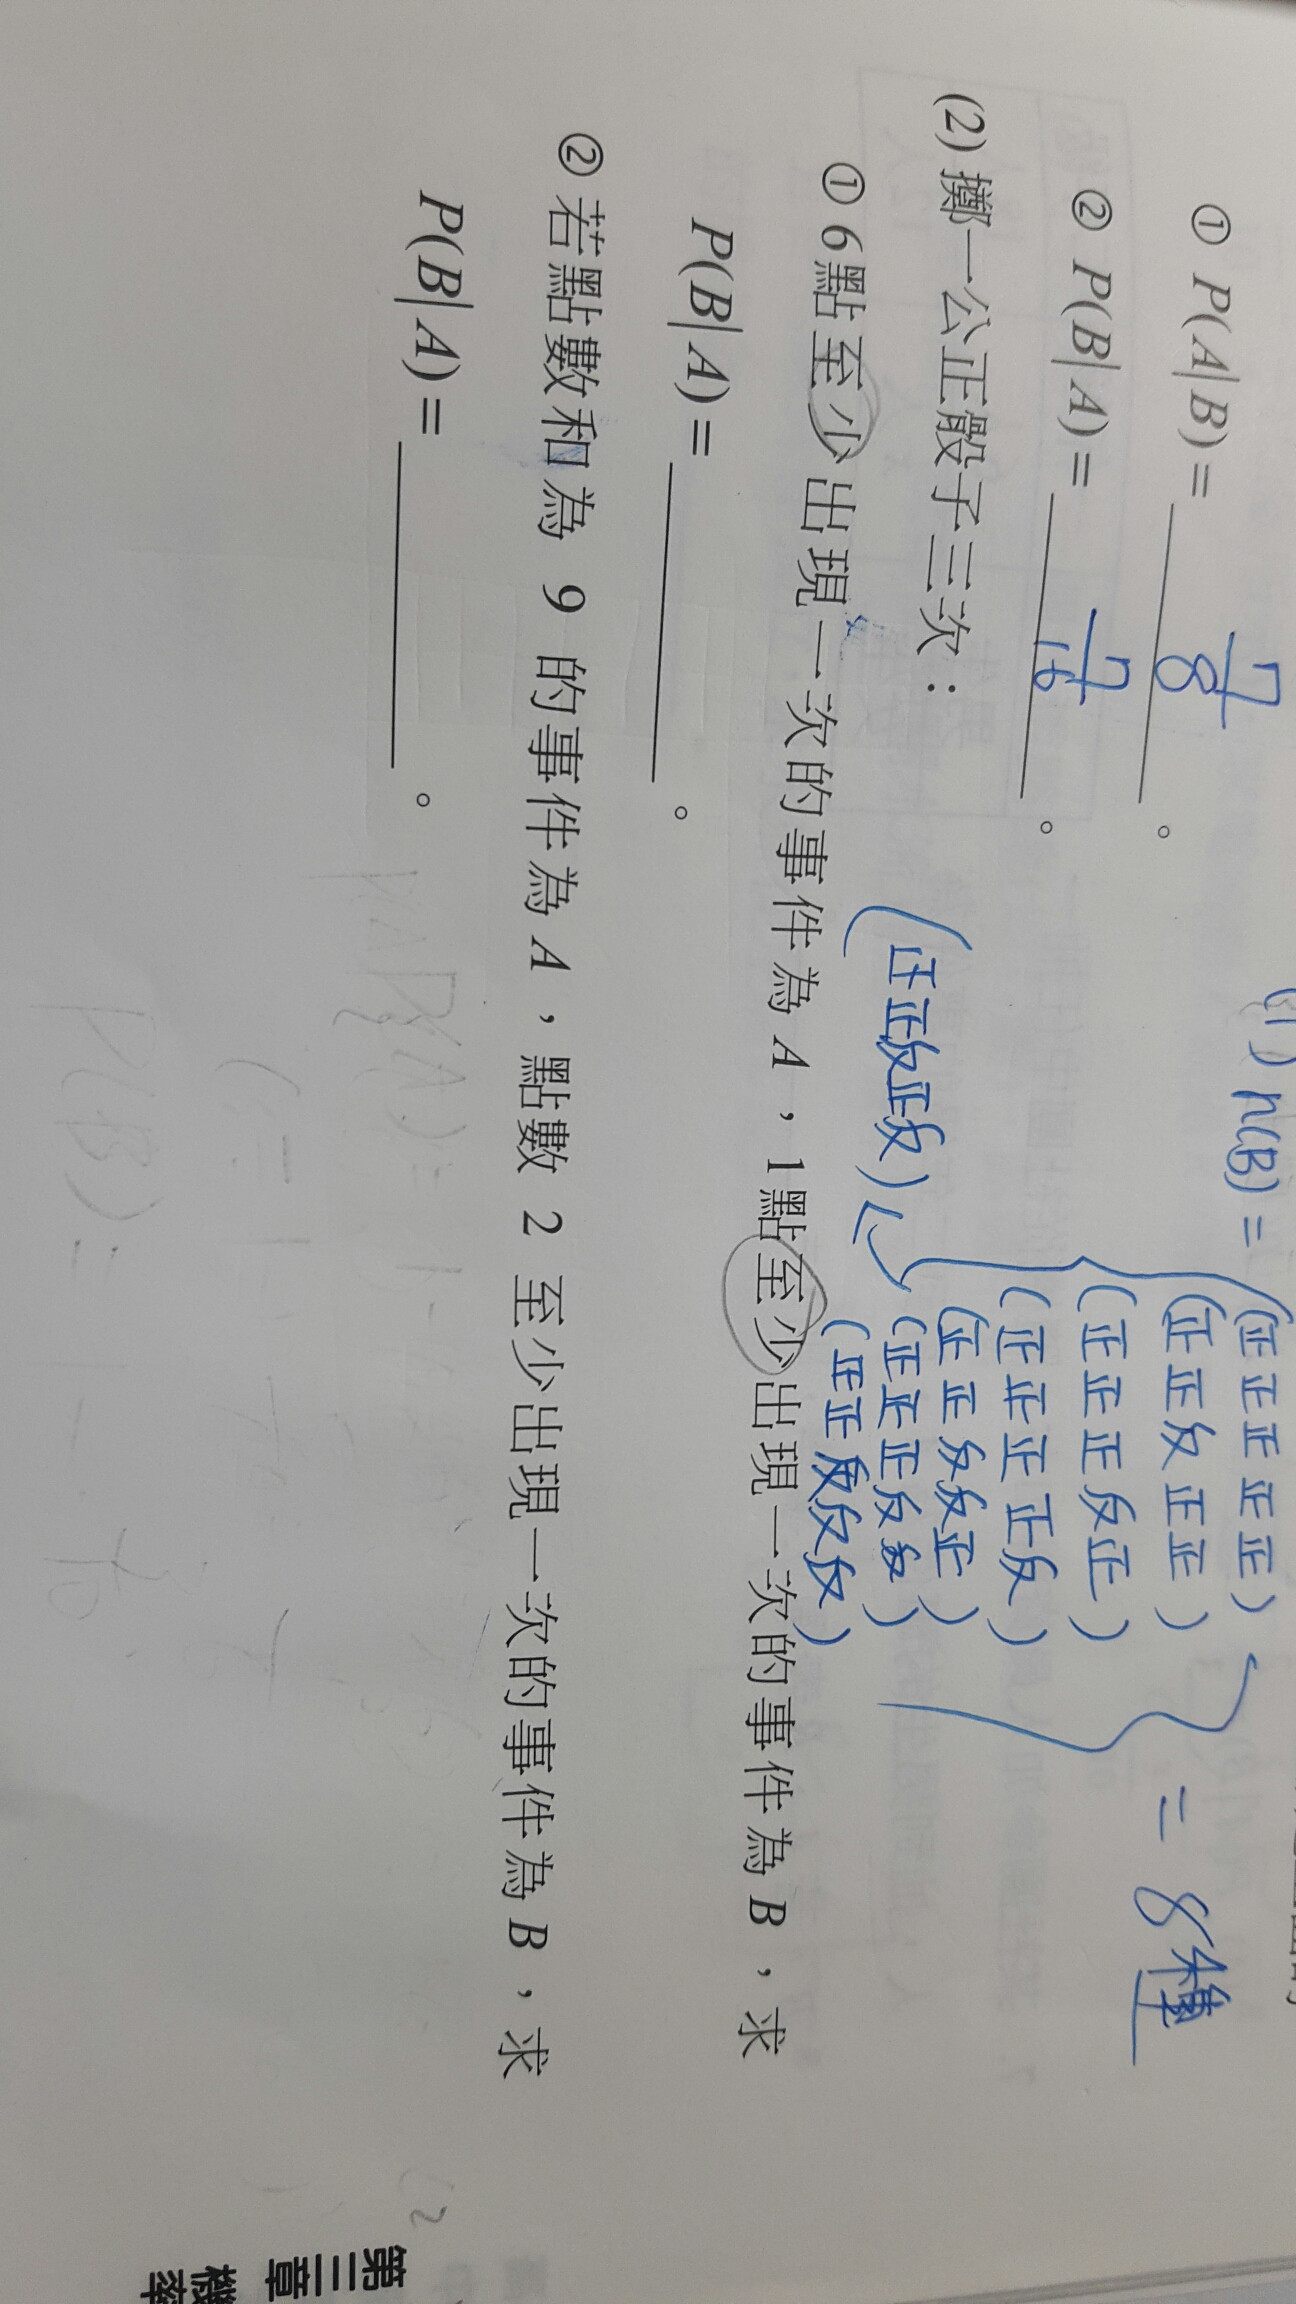 ① P(A|B)= 7/8 。
② P(B|A)= 7/16 。
(1) n(B) =
(正正正正正)
(正正反正正)
(正正正反正)
(正正正正反)
(正正反反正)
(正正正反反)
(正正反反反)
(正正反正反)
= 8種
(2) 擲一公正骰子三次：
① 6點至少出現一次的事件為 A，1點至少出現一次的事件為 B，求
P(B|A)= 。
② 若點數和為 9 的事件為 A，點數 2 至少出現一次的事件為 B，求
P(B|A)= 。
第三章 機率